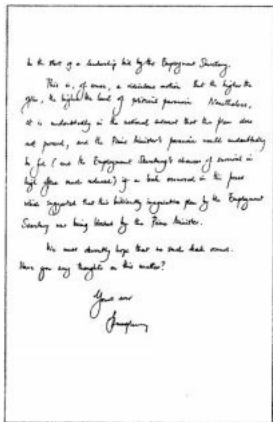 the start of a leadership bid by the Employment Secretary.
This is, of course, a ridiculous notion. But the higher the
office, the higher the level of political paranoia. Nonetheless,
it is undoubtedly in the national interest that the plan does
not proceed, and the Prime Minister's paranoia would undoubtedly
be fed (and the Employment Secretary's chances of survival in
high office much reduced) if a leak occurred in the press
which suggested that this brilliantly imaginative plan by the Employment
Secretary was being blocked by the Prime Minister.
We must sincerely hope that no such leak occurs.
Have you any thoughts on this matter?
Yours ever
Humphrey